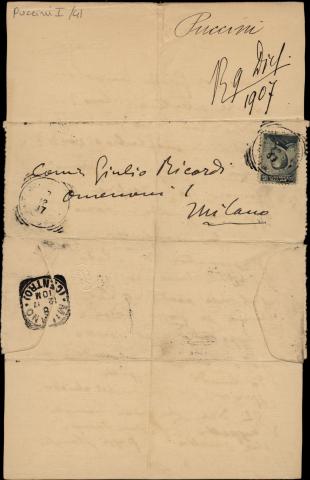 Puccini I /41
Puccini
R 9 Dic.
1907
Comm Giulio Ricordi
Omenoni 1
Milano
MILANO
(CENTRO)